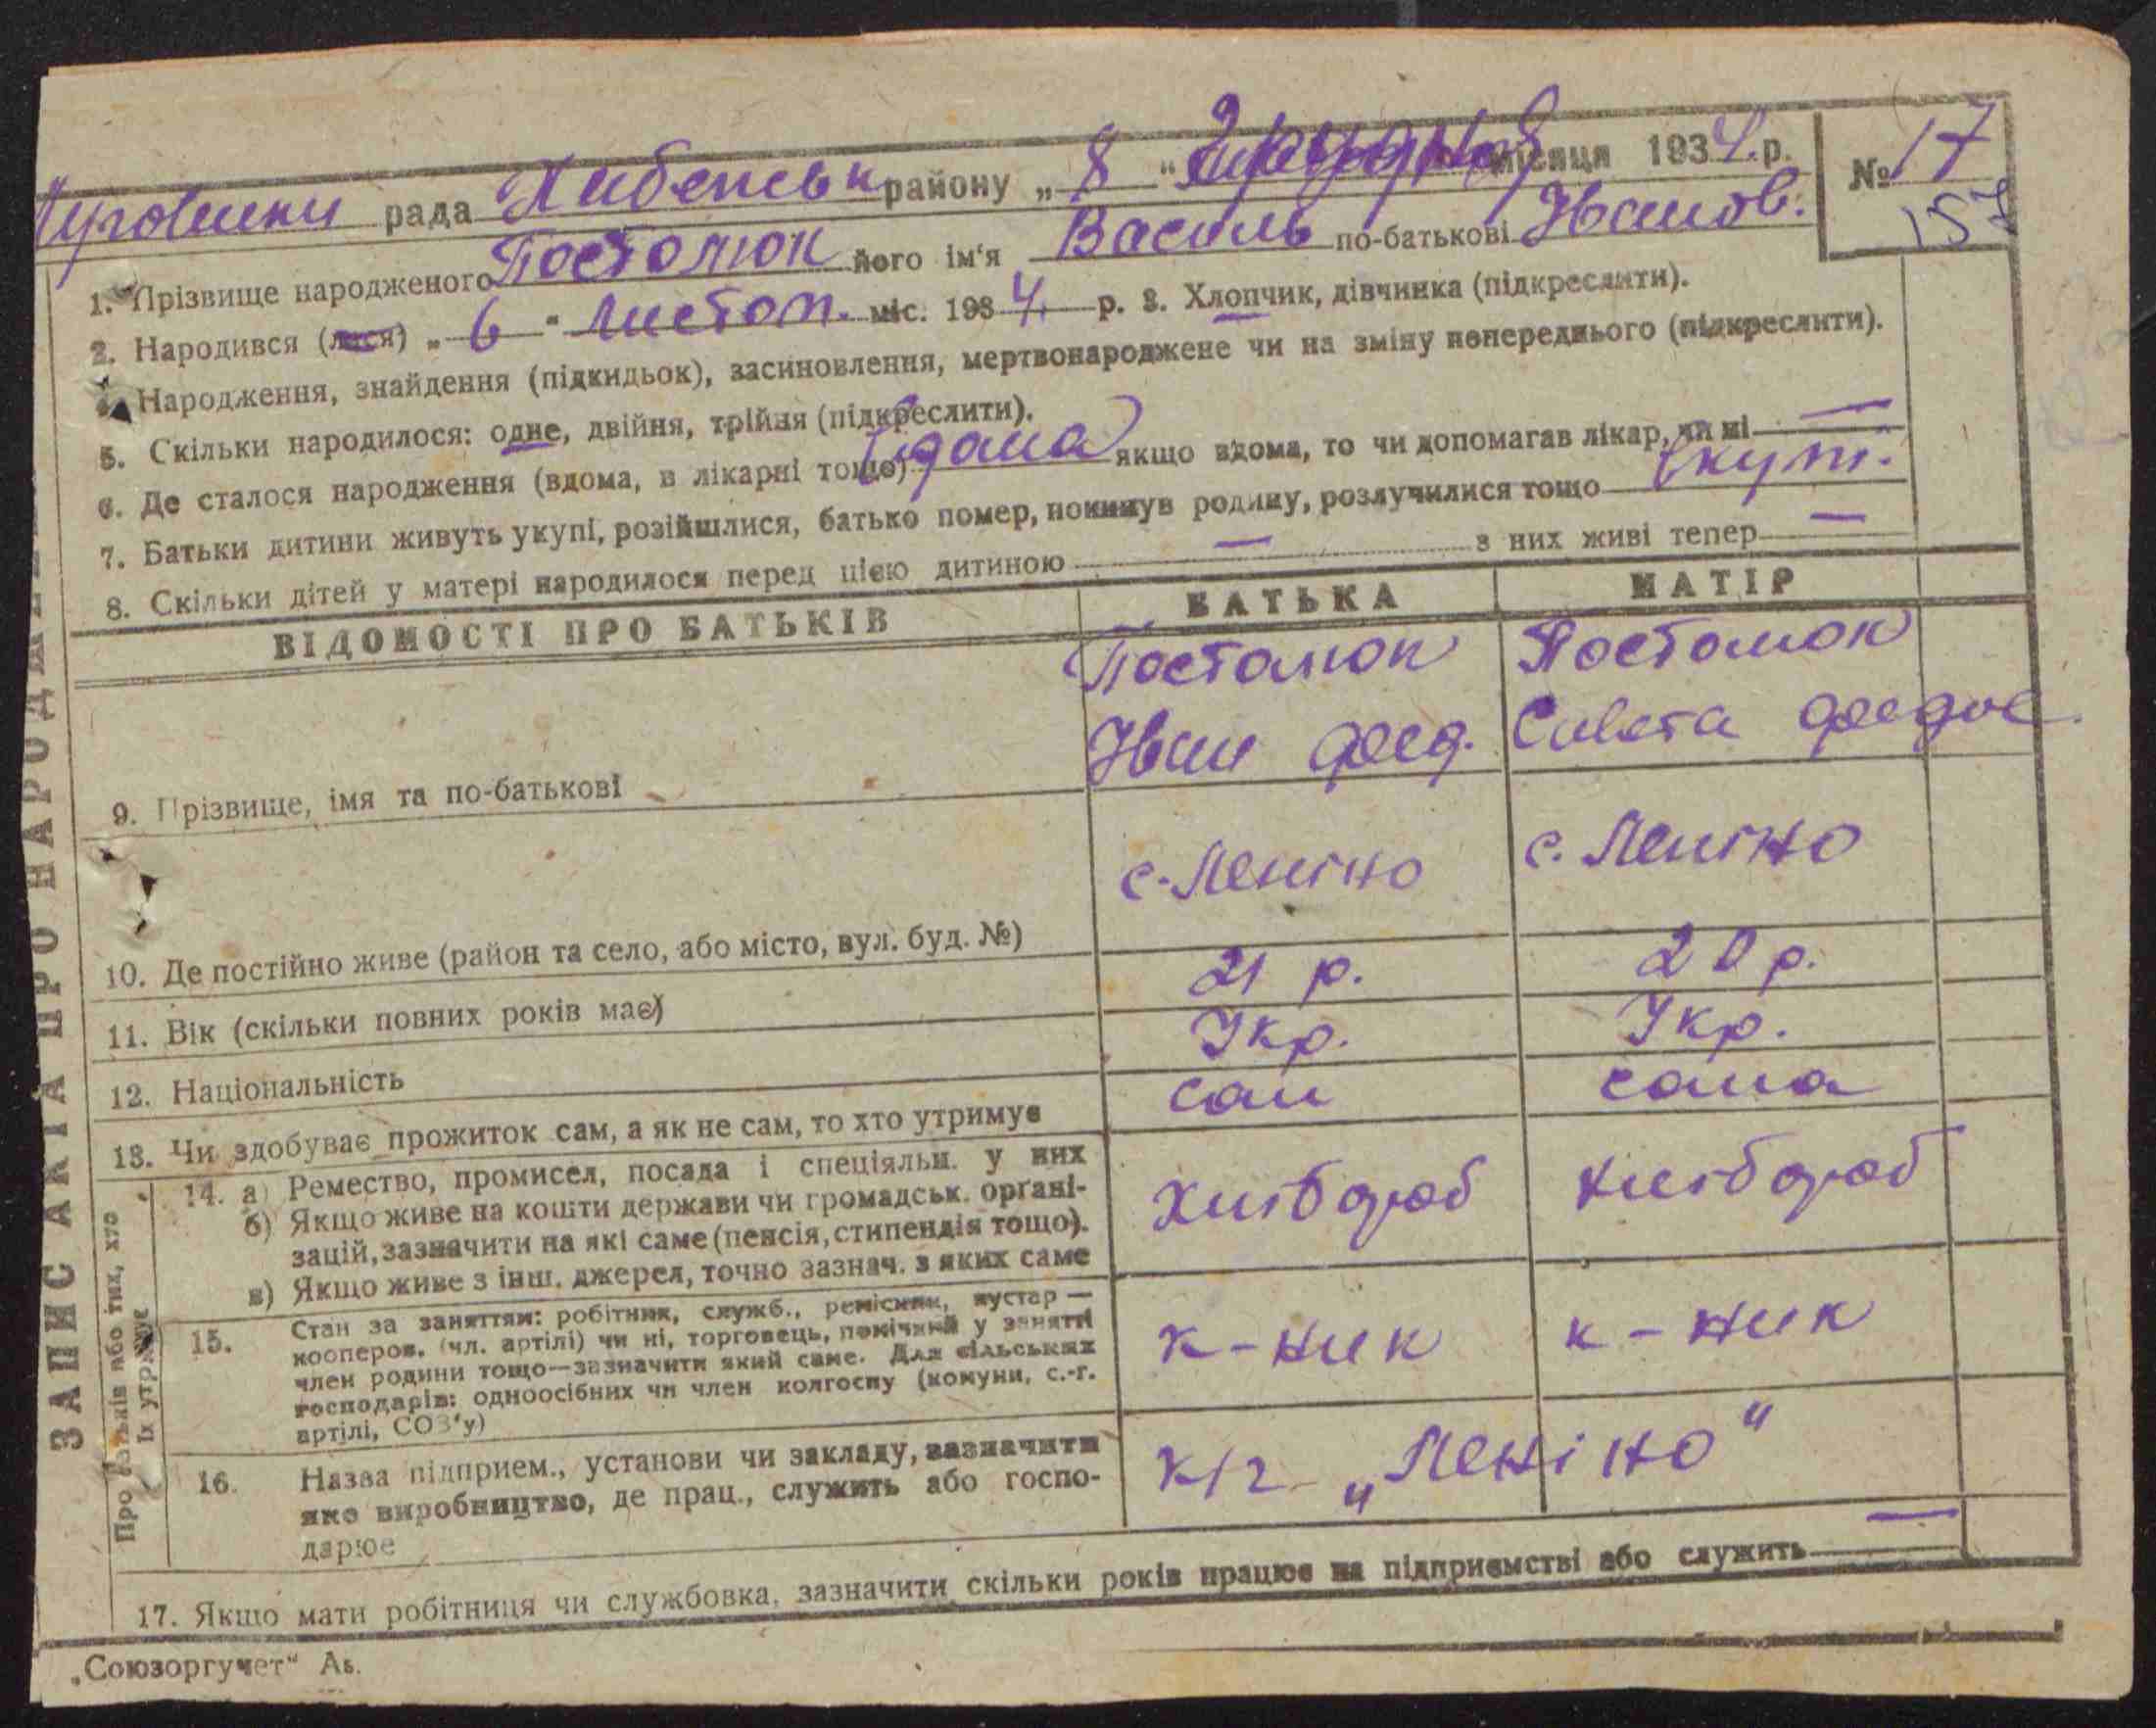 рада района „ 8 " місяця 1934. р. № 17
157
1. Прізвище народженого Постолюк його ім'я Василь по-батькові Іванов.
2. Народився (лася) „ 6 " листоп. міс. 1934 р. 3. Хлопчик, дівчинка (підкреслити).
Народження, знайдення (підкидьок), засиновлення, мертвонароджене чи на зміну попереднього (підкреслити).
5. Скільки народилося: одне, двійня, трійня (підкреслити).
6. Де сталося народження (вдома, в лікарні тощо) вдома якщо вдома, то чи допомагав лікар, чи ні —
7. Батьки дитини живуть укупі, розійшлися, батько помер, покинув родину, розлучилися тощо вкупі.
8. Скільки дітей у матері народилося перед цією дитиною — з них живі тепер —
ВІДОМОСТІ ПРО БАТЬКІВ БАТЬКА МАТІР
Постолюк Постолюк
Іван Фед.
9. Прізвище, імя та по-батькові
с. Леніно с. Леніно
10. Де постійно живе (район та село, або місто, вул. буд. №)
11. Вік (скільки повних років має) 21 р. 20 р.
12. Національність Укр. Укр.
13. Чи здобуває прожиток сам, а як не сам, то хто утримує сам сама
14. а) Ремество, промисел, посада і спеціяльн. у них
б) Якщо живе на кошти держави чи громадськ. організацій, зазначити на які саме (пенсія, стипендія тощо).
в) Якщо живе з інш. джерел, точно зазнач. з яких саме
Хлібороб Хлібороб
15. Стан за заняттям: робітник, служб., ремісник, кустар —
кооперов. (чл. артілі) чи ні, торговець, помічний у занятті
член родини тощо—зазначити який саме. Для сільських
господарів: одноосібних чи член колгоспу (комуни, с.-г.
артілі, СОЗ'у)
к-ник к-ник
16. Назва підприєм., установи чи закладу, зазначити
яке виробництво, де прац., служить або госпо-
дарює
к/г „Леніно"
17. Якщо мати робітниця чи службовка, зазначити скільки років працює на підприємстві або служить —
„Союзоргучет"
ЗАПИС АКТА ПРО НАРОДЖЕН
Про батьків або тих, хто
їх утримує